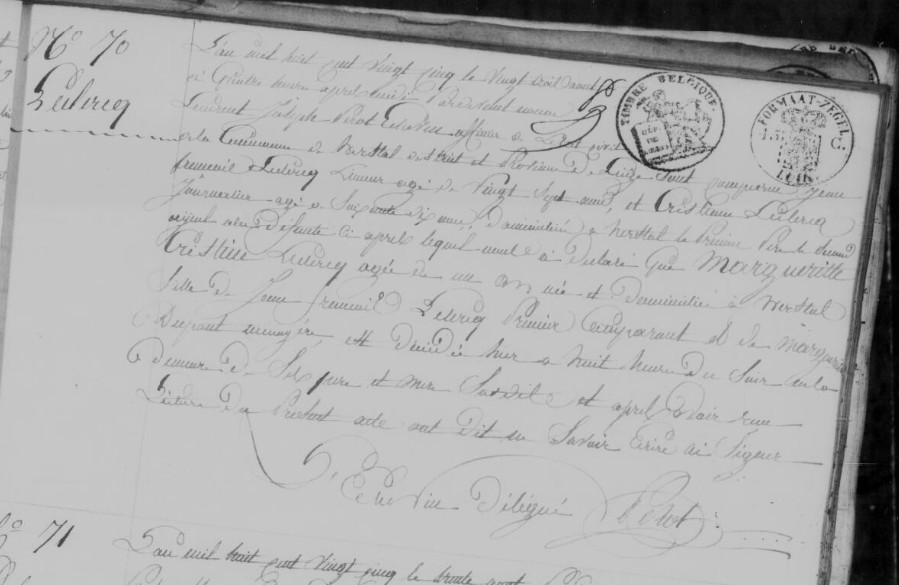 N° 70
Leclercq
L'an mil huit cent vingt cinq le vingt trois d'aout
à quatre heure après midi Pardevant nous
Laurent Joseph Perot Echevin officier de L'état
de la Commune de herstal district et Province de Liége Sont comparu jean
francois Leclercq Limeur agé de Vingt Sept ans, et Cristienne Leclercq
journalier agé de Soixante dix ans, Domicilié à herstal le Premier Pere le second
de la défunte ci après lequel nous à déclaré que Margueritte
Cristine Leclercq agée de un an née et Domiciliée à herstal
fille de Jean francois Leclercq Premier Comparant et de Margueritte
Dupont menagère, est décédée hier a huit heure Du Soir en la
demeure de Ses pere et mere Susdit et après avoir eu
Lecture Du Present acte ont dit ne Savoir Ecrire ni Signer
L'Echevin Délégué Perot
TIMBRE BELGIQUE
FORMAAT-ZEGEL
C.
N° 71
L'an mil huit cent vingt cinq le trente aout